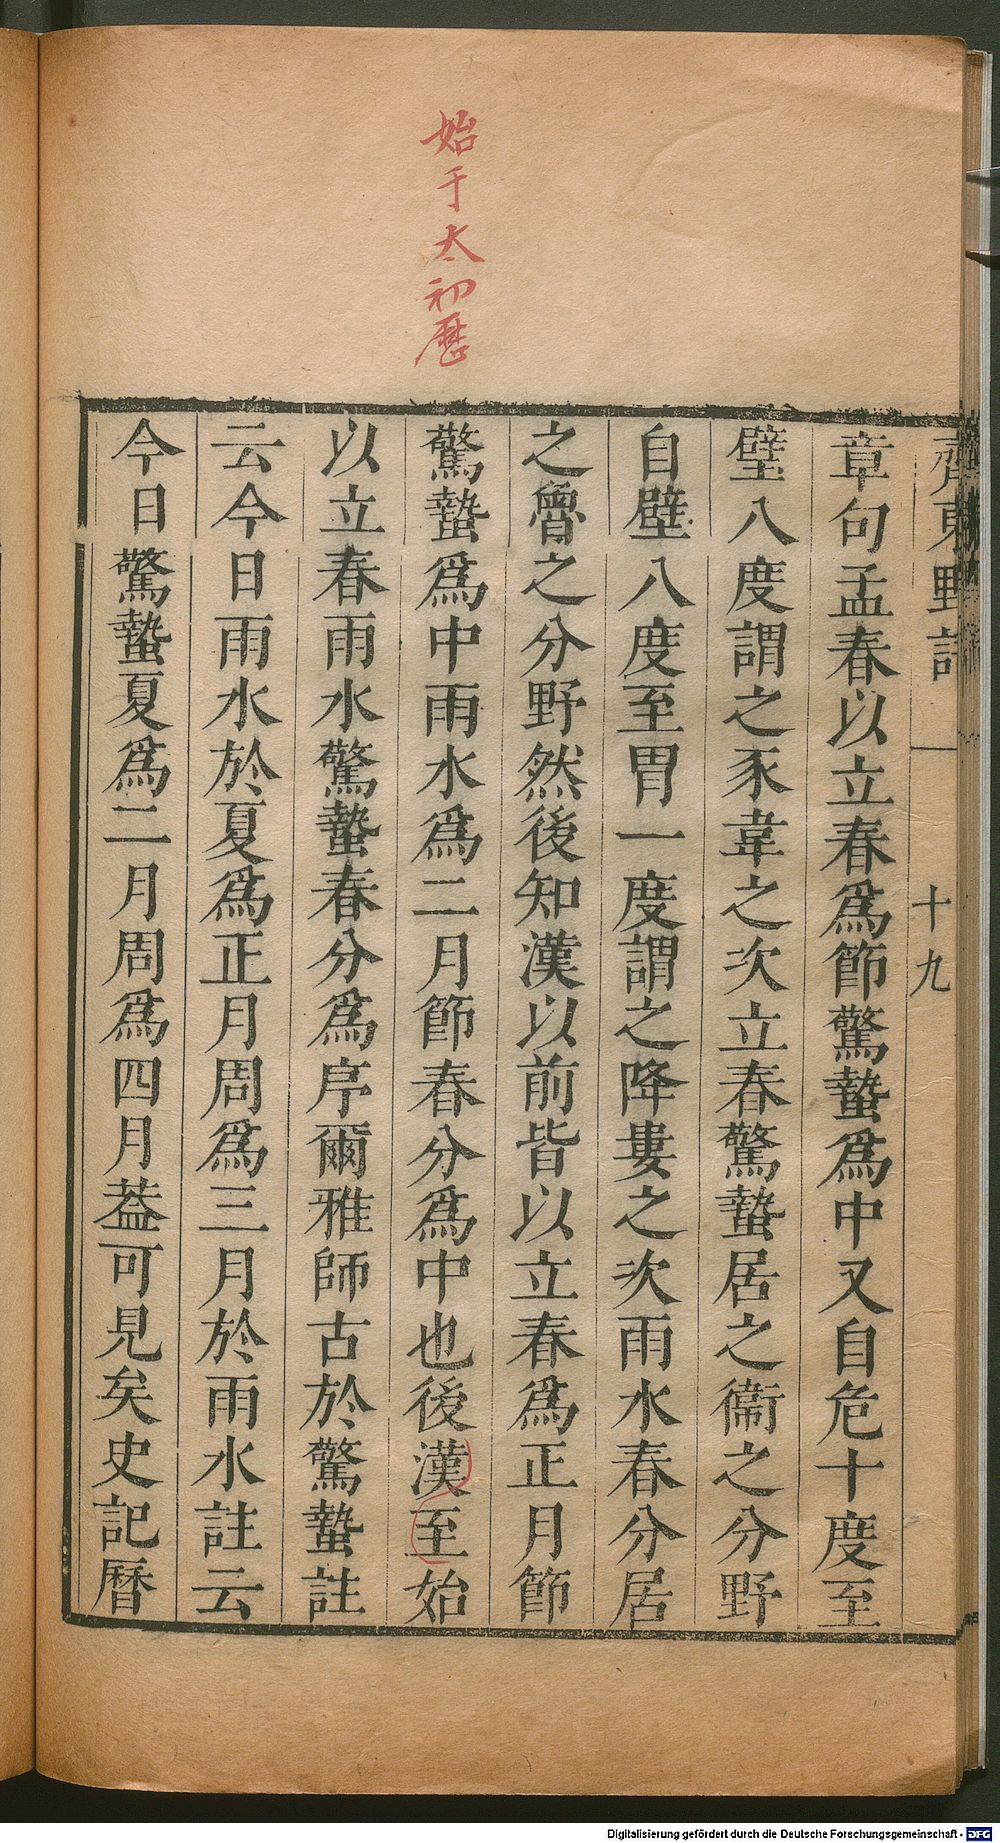 始于太初曆
齊東野語
十九
章句孟春以立春爲節驚蟄爲中又自危十度至
壁八度謂之豕韋之次立春驚蟄居之衞之分野
自壁八度至胃一度謂之降婁之次雨水春分居
之魯之分野然後知漢以前皆以立春爲正月節
驚蟄爲中雨水爲二月節春分爲中也後漢至始
以立春雨水驚蟄春分爲序爾雅師古於驚蟄註
云今日雨水於夏爲正月周爲三月於雨水註云
今日驚蟄夏爲二月周爲四月葢可見矣史記曆
Digitalisierung gefördert durch die Deutsche Forschungsgemeinschaft - DFG